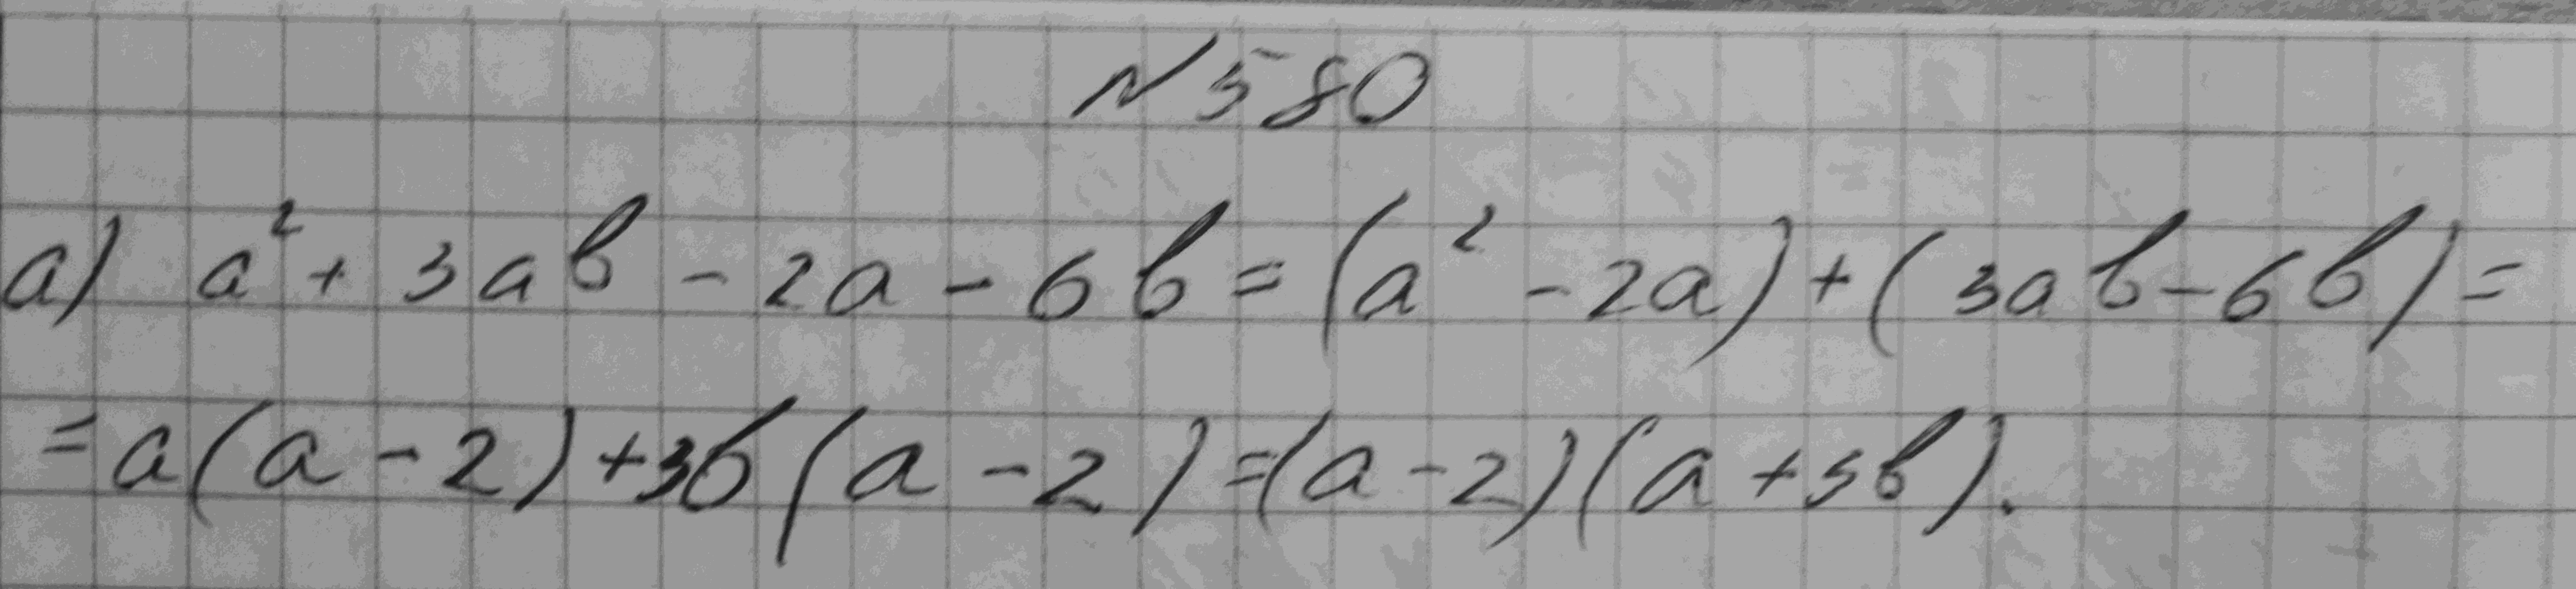 N 580
a) a² + 3ab - 2a - 6b = (a² - 2a) + (3ab - 6b) =
= a(a - 2) + 3b(a - 2) = (a - 2)(a + 3b).